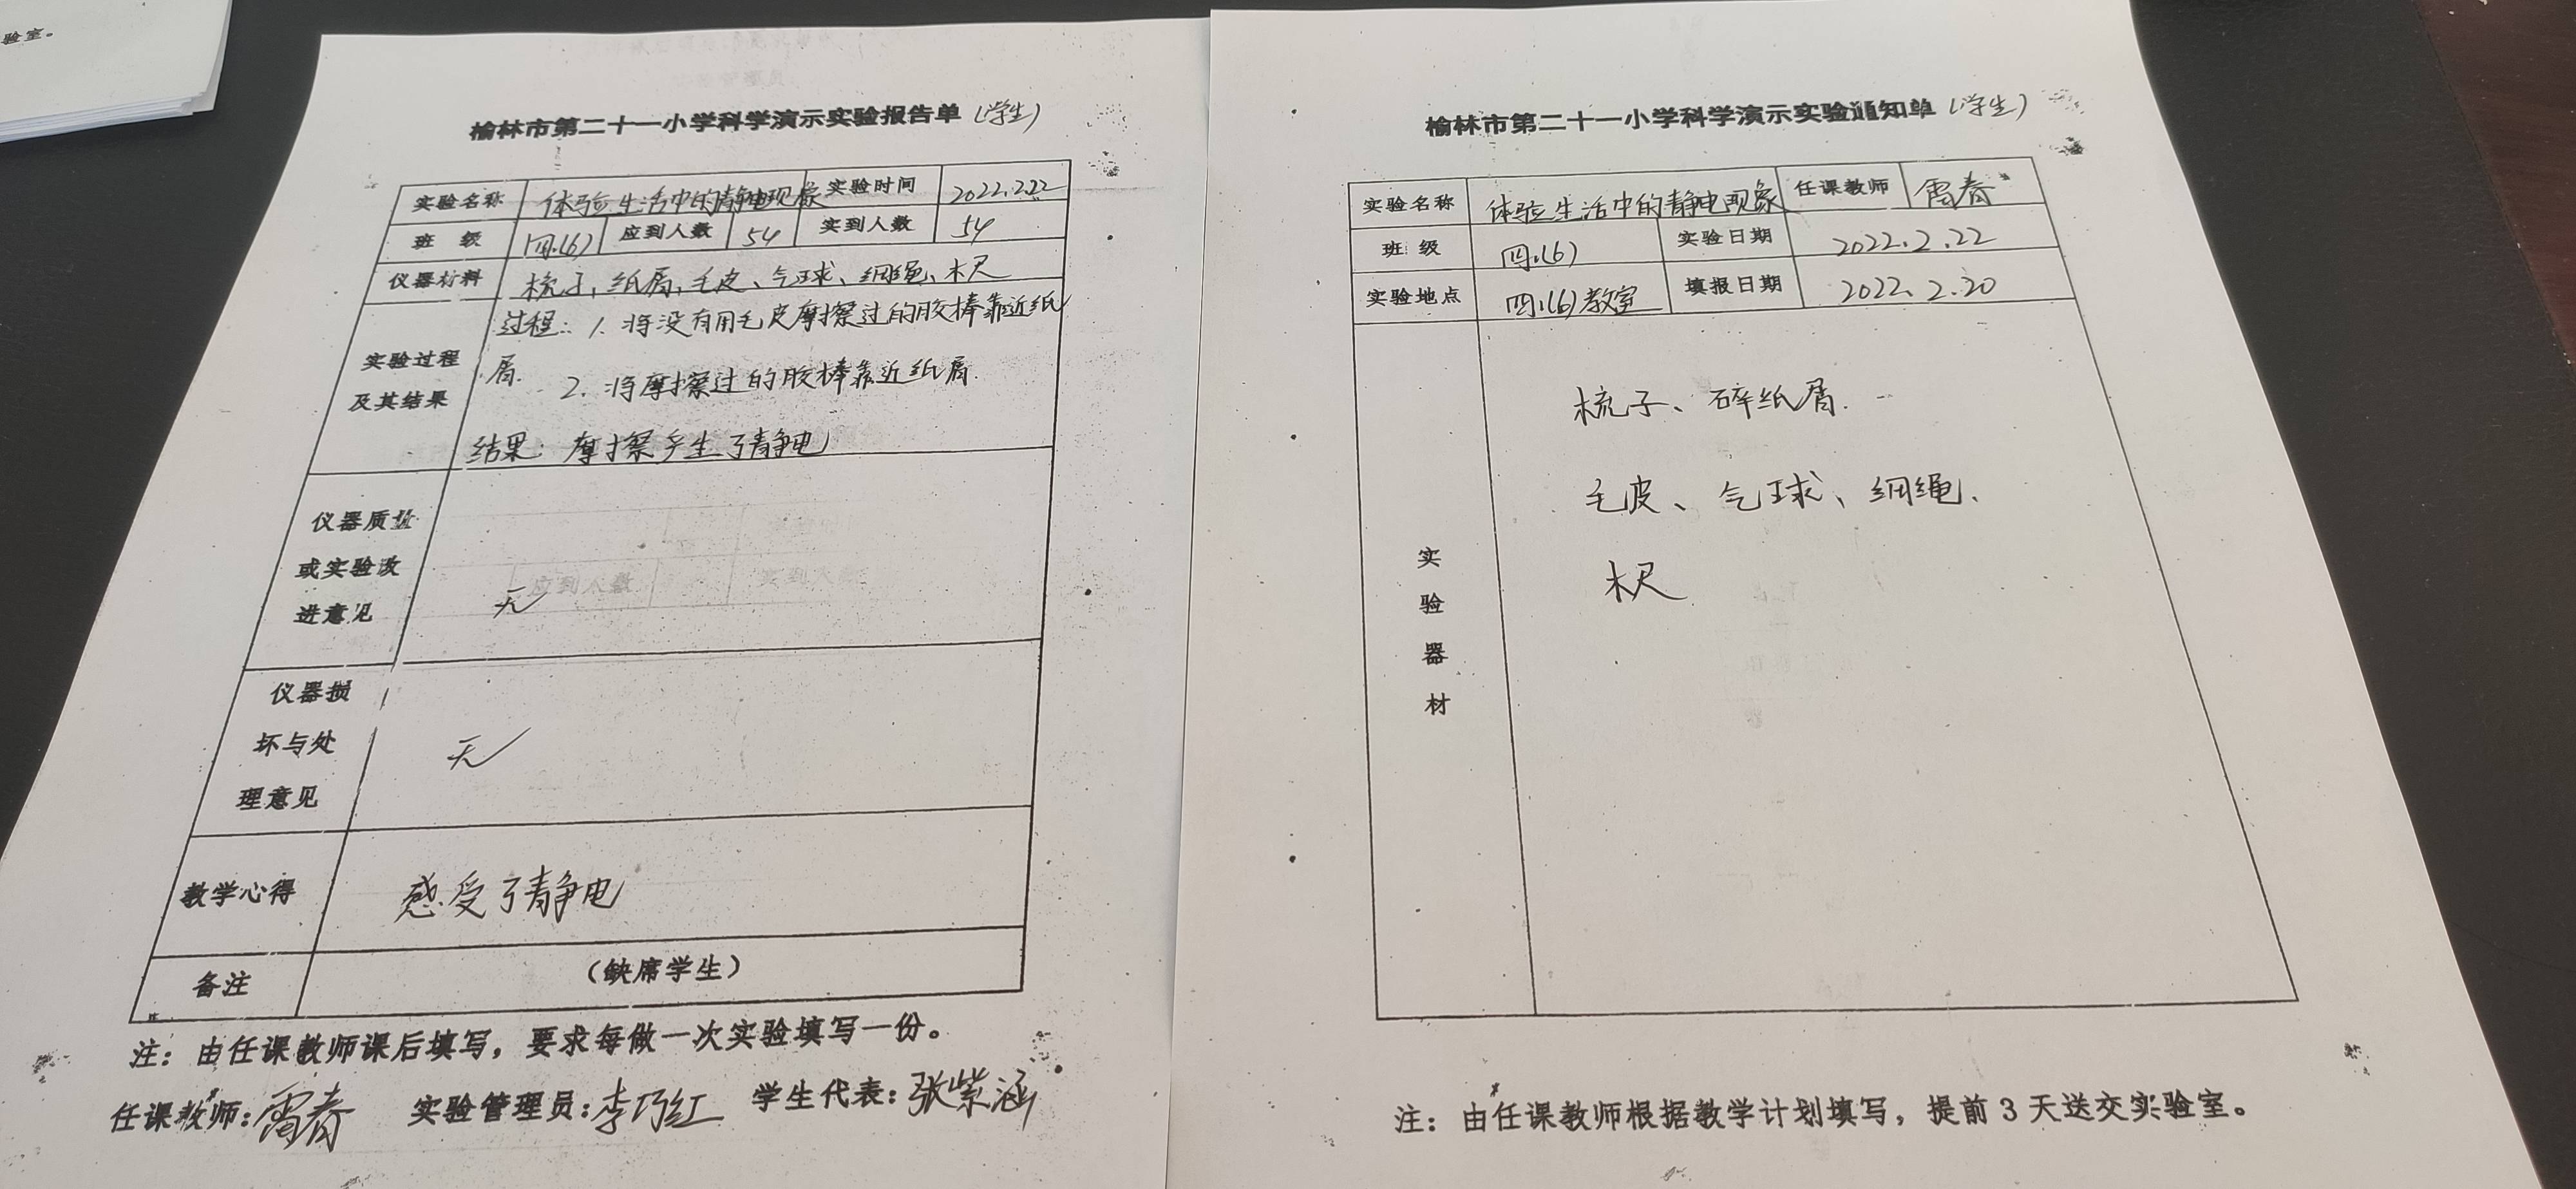 验室。
榆林市第二十一小学科学演示实验报告单（学生）
实验名称 体验生活中的静电现象 实验时间 2022.2.22
班 级 四.(6) 应到人数 54 实到人数 54
仪器材料 梳子、纸屑、毛皮、气球、细绳、木尺
实验过程
及其结果
过程：1. 将没有用毛皮摩擦过的胶棒靠近纸
屑.
2. 将摩擦过的胶棒靠近纸屑.
结果：摩擦产生了静电
仪器质量
或实验改
进意见
无
仪器损
坏与处
理意见
无
教学心得 感受了静电
备注 （缺席学生）
注：由任课教师课后填写，要求每做一次实验填写一份。
任课教师：雷春 实验管理员：李巧红 学生代表：张紫涵
榆林市第二十一小学科学演示实验通知单（学生）
实验名称 体验生活中的静电现象 任课教师 雷春
班 级 四.(6) 实验日期 2022.2.22
实验地点 四.(6)教室 填报日期 2022.2.20
实
验
器
材
梳子、碎纸屑.
毛皮、气球、细绳、
木尺
注：由任课教师根据教学计划填写，提前3天送交实验室。